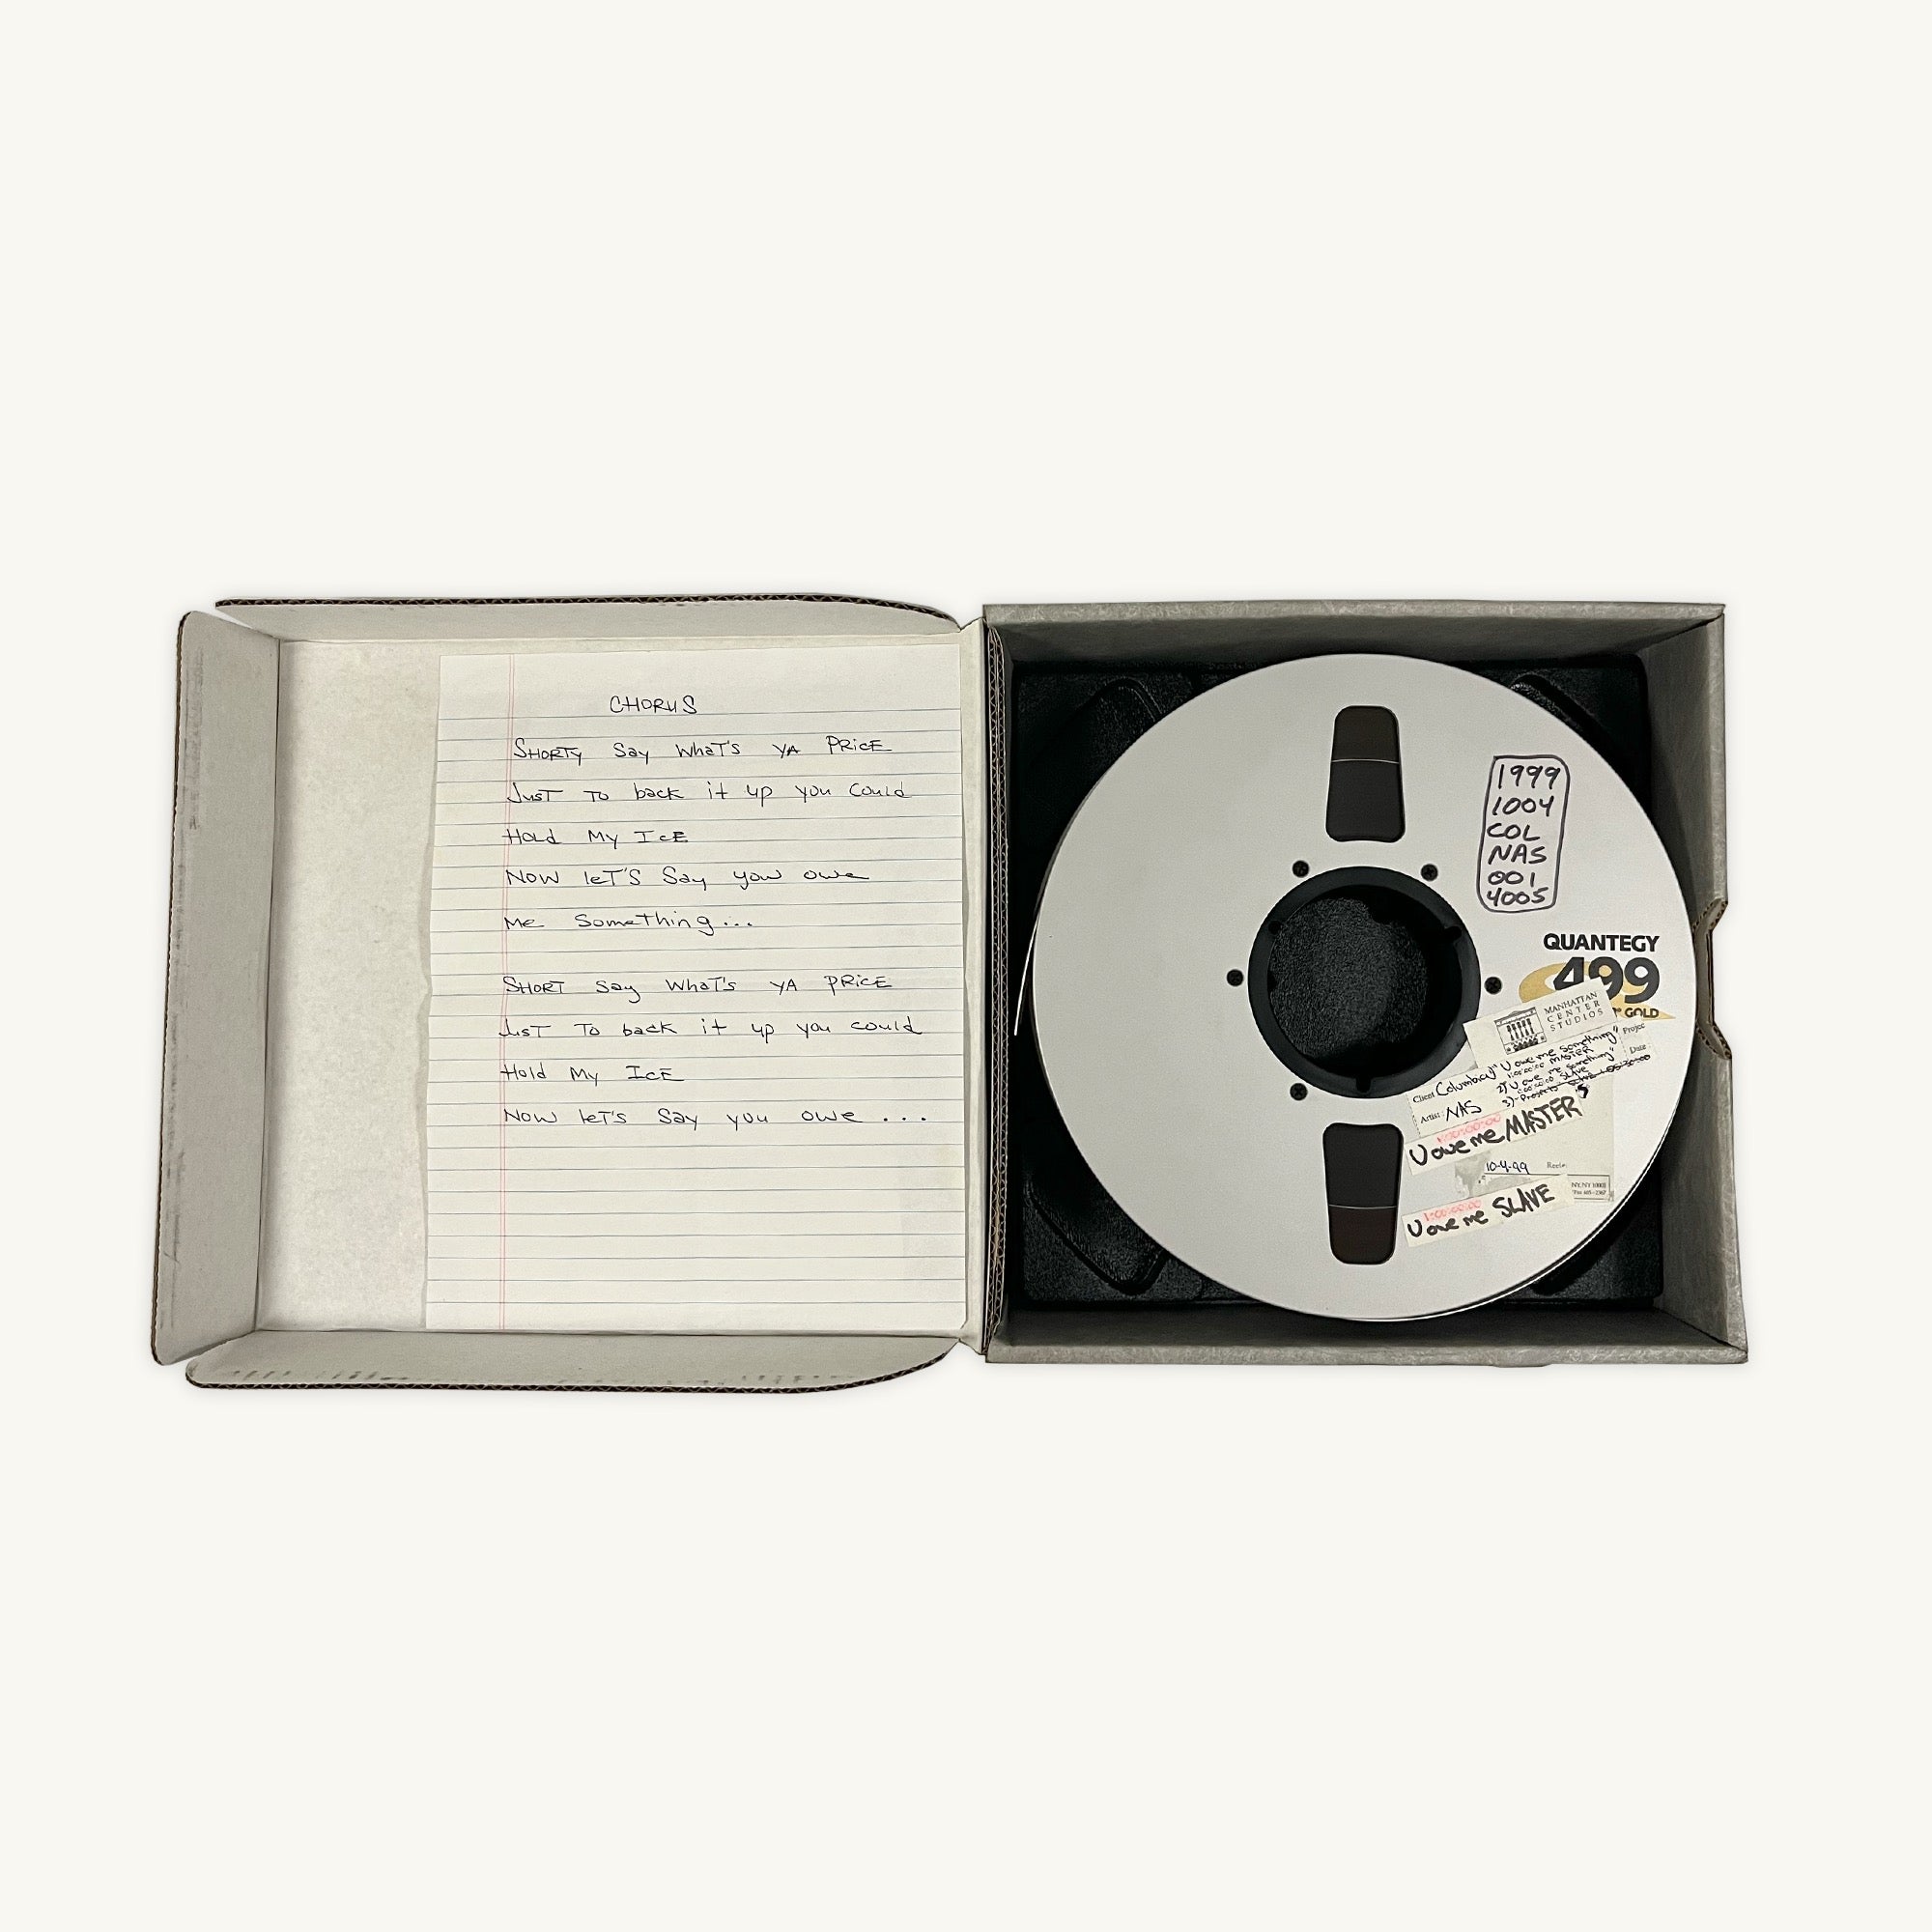 CHORUS
SHORTY Say WhaT's YA PRICE
JusT To back it up you Could
Hold My IcE
Now leT'S Say you owe
Me SomeThing...
SHORT Say WhaT's YA PRICE
JusT To back it up you could
Hold My IcE
Now leT's Say you owe ...
1999
1004
COL
NAS
001
4005
QUANTEGY
499
GOLD
MANHATTAN
CENTER
STUDIOS
Projec
Date
Client Columbia 1) "U owe me Something"
1:00:00:00 MASTER
2) U owe me Something"
1:00:00:00 SLAVE
3)
Artist: NAS
1:00:00:00
U owe me MASTER
10-4-99 Reel
NY, NY 10001
1:00:00:00
U owe me SLAVE